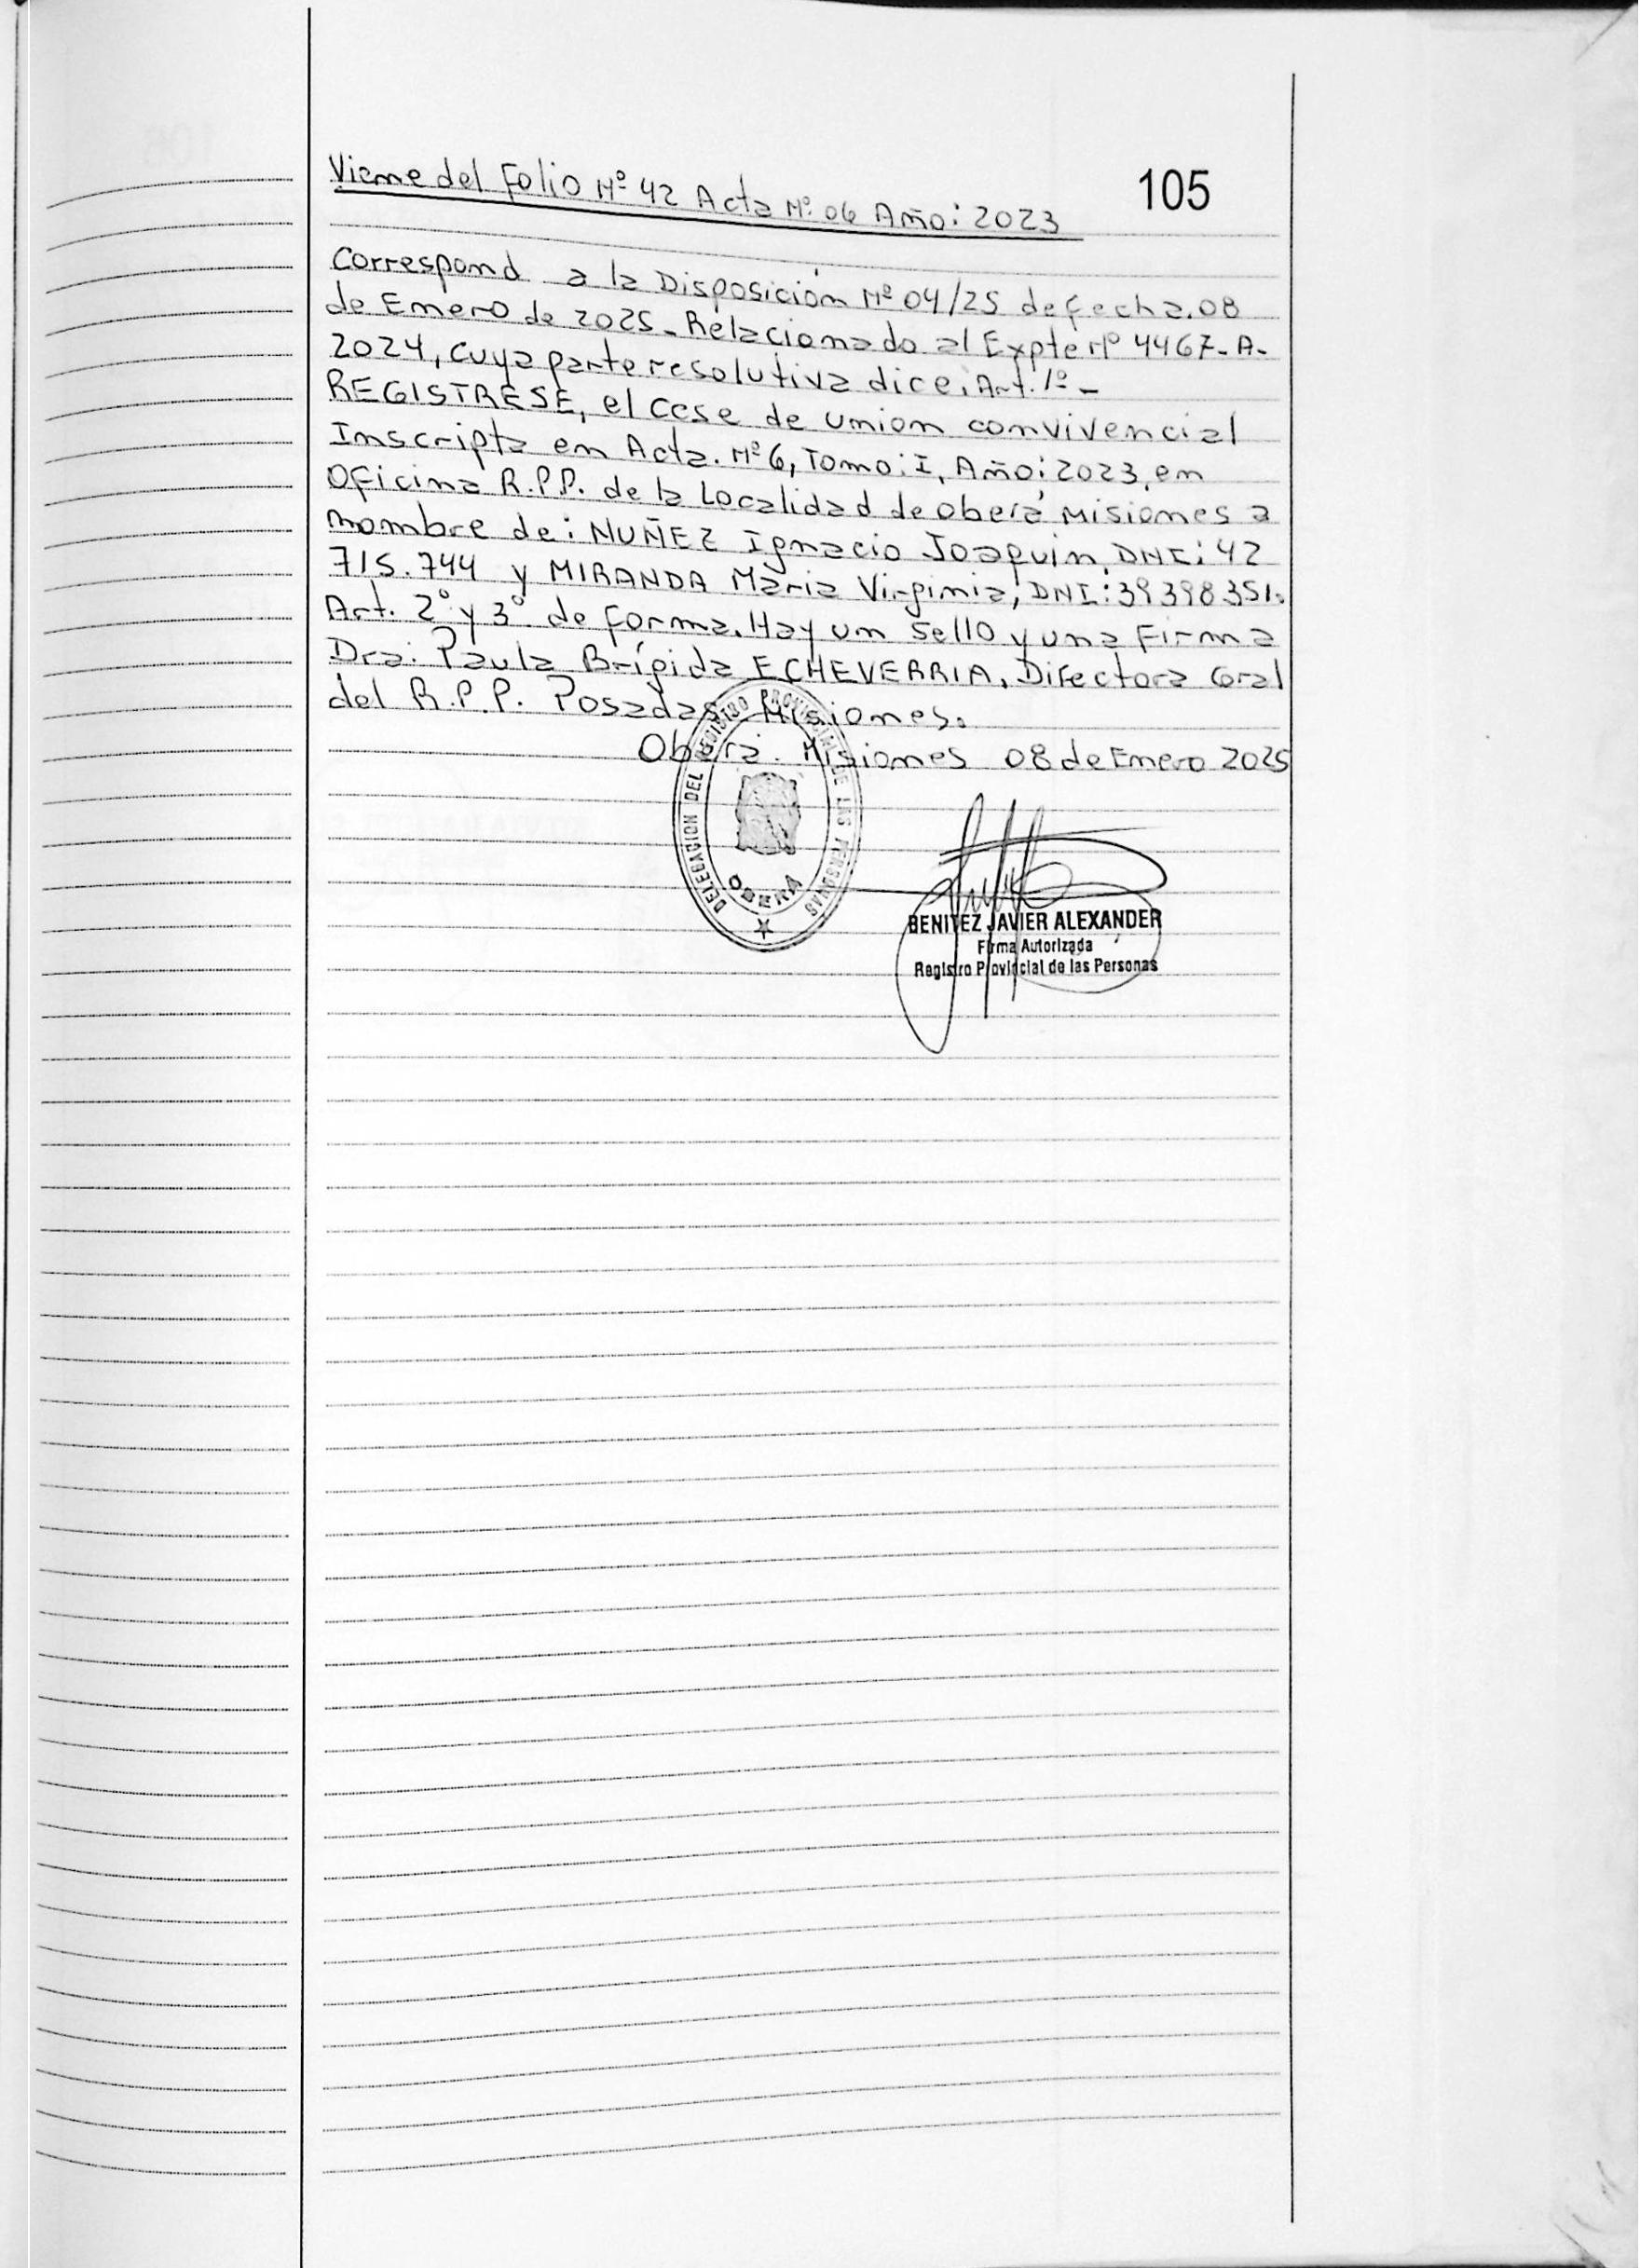 Viene del Folio Nº 42 Acta Nº 06 Año: 2023
105
Correspond a la Disposición Nº 04/25 de fecha. 08
de Enero de 2025_ Relacionado al Expte Nº 4467-A-
2024, cuya parte resolutiva dice, Art. 1º_
REGISTRESE, el cese de union convivencial
Inscripta en Acta. Nº 6, Tomo: I, Año: 2023, en
Oficina R.P.P. de la Localidad de oberá Misiones a
nombre de: NUÑEZ Ignacio Joaquin, DNI: 42
715.744 y MIRANDA Maria Virginia, DNI: 39398351.
Art. 2º y 3º de forma. Hay un sello y una Firma
Dra. Paula Brígida ECHEVERRIA, Directora Gral
del R.P.P. Posadas Misiones.
Oberá. Misiones 08 de Enero 2025
DELEGACION DEL REGISTRO PROVINCIAL DE LAS PERSONAS
OBERA
BENITEZ JAVIER ALEXANDER
Firma Autorizada
Registro Provincial de las Personas